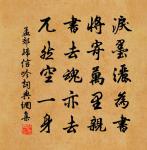 淚墨灑為書
將寄萬里親
書去魂亦去
兀然空一身
孟郊歸信吟詞典網集